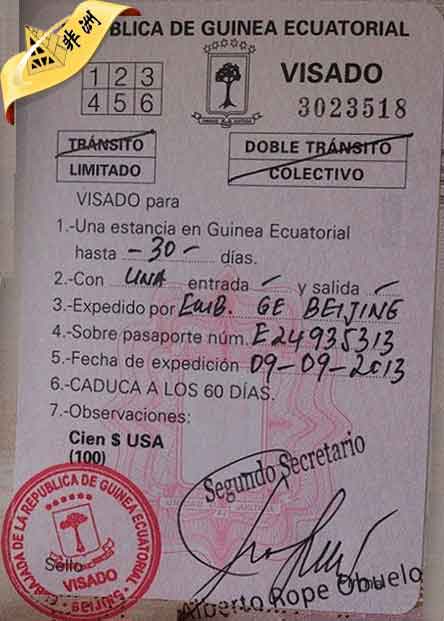 非洲
REPÚBLICA DE GUINEA ECUATORIAL
1 2 3
4 5 6
VISADO
3023518
TRÁNSITO
LIMITADO
DOBLE TRÁNSITO
COLECTIVO
VISADO para
1.-Una estancia en Guinea Ecuatorial
hasta -30- días.
2.-Con UNA entrada - y salida -
3.-Expedido por EMB. GE BEIJING
4.-Sobre pasaporte núm. E24935313
5.-Fecha de expedición 09-09-2013
6.-CADUCA A LOS 60 DÍAS.
7.-Observaciones:
Cien $ USA
(100)
Segundo Secretario
EMBAJADA DE LA REPUBLICA DE GUINEA ECUATORIAL
Sello
VISADO
Firma
Alberto Rope Obuelo